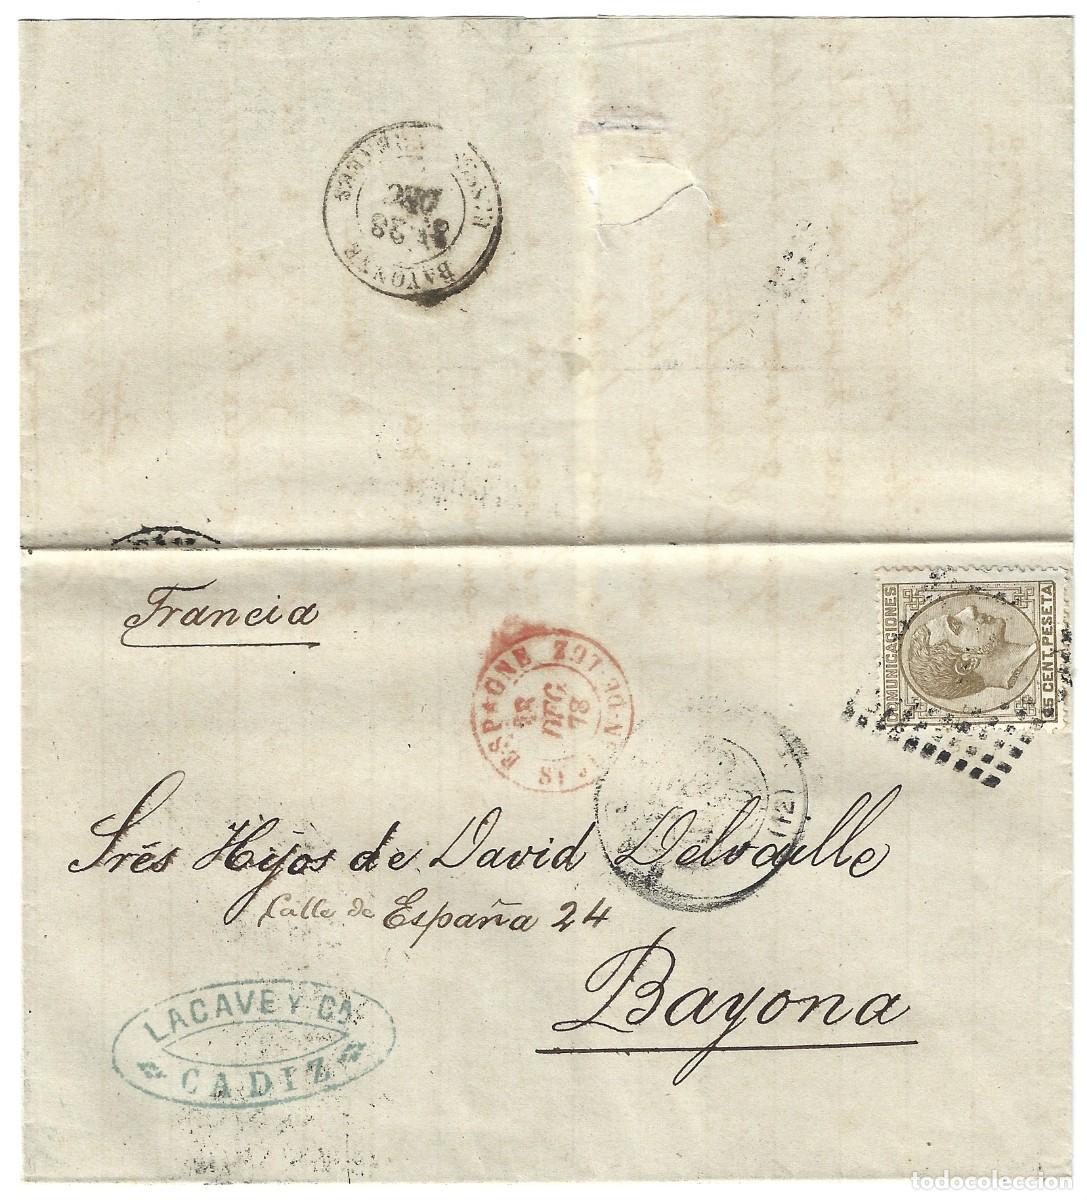 BAYONNE
28
DEC
Francia
COMUNICACIONES
25 CENT. PESETA
ESPAGNE
28
DEC
78
(12)
Srés Hijos de David Delvalle
Calle de España 24
Bayona
LACAVE Y CA
CADIZ
todocoleccion